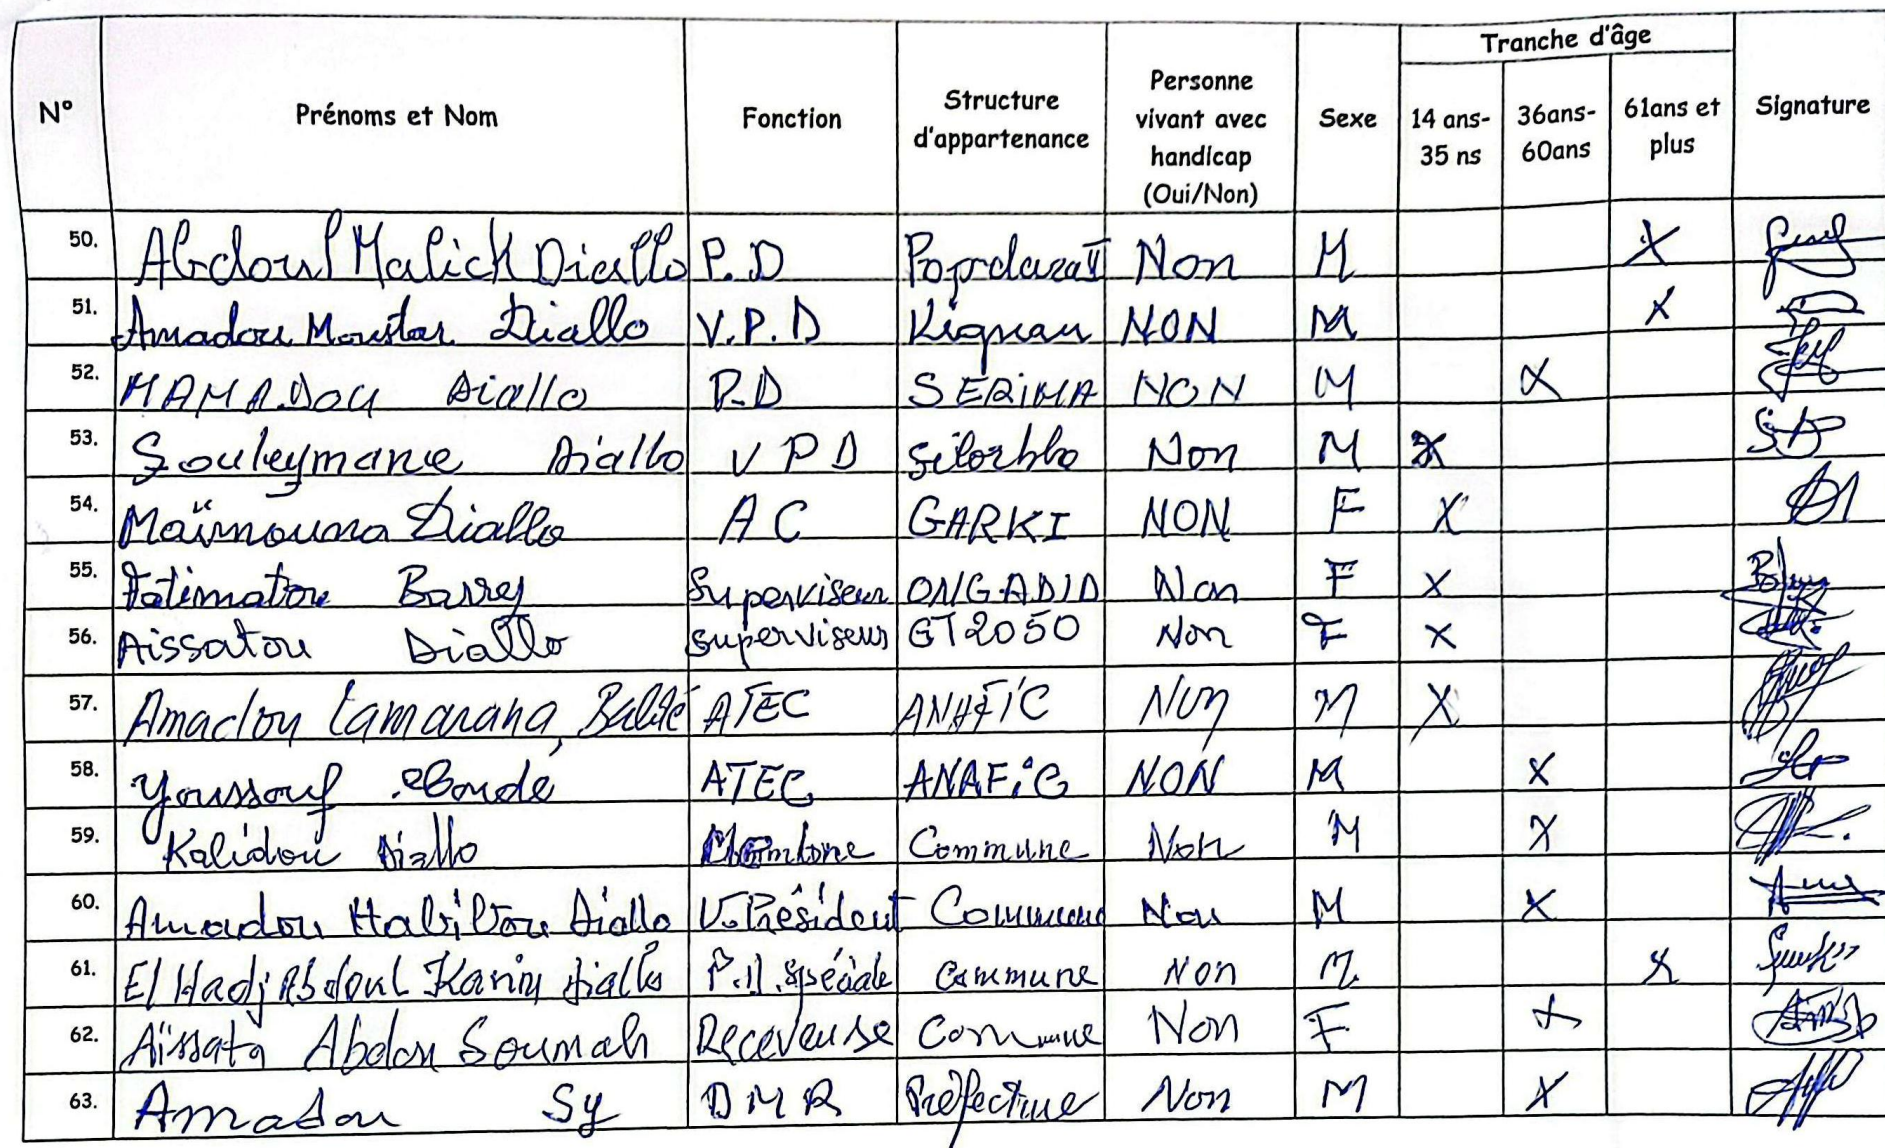 Tranche d'âge
N° Prénoms et Nom Fonction Structure d'appartenance Personne vivant avec handicap (Oui/Non) Sexe 14 ans-35 ns 36ans-60ans 61ans et plus Signature
50. Abdoul Malick Diallo P.D Non M X
51. Amadou Moustar Diallo V.P.D Kignan NON M X
52. MAMADOU Diallo P.D SERIMA NON M X
53. Souleymane Diallo V P D Non M X
54. Maïmouna Diallo A C GARKI NON F X
55. Fatimatou Barry Superviseur ONGADID Non F X
56. Aissatou Diallo Superviseur GT2050 Non F X
57. Amadou Lamarana Baldé ATEC ANAFIC Non M X
58. Youssouf ATEC ANAFiC NON M X
59. Kalidou Diallo Commune Non M X
60. Amadou Habibou Diallo V. Président Commune Non M X
61. El Hadj Abdoul Karim Diallo P.D. Spéciale Commune Non M X
62. Aïssata Abdou Soumah Receveuse Commune Non F X
63. Amadou Sy D M R Préfecture Non M X